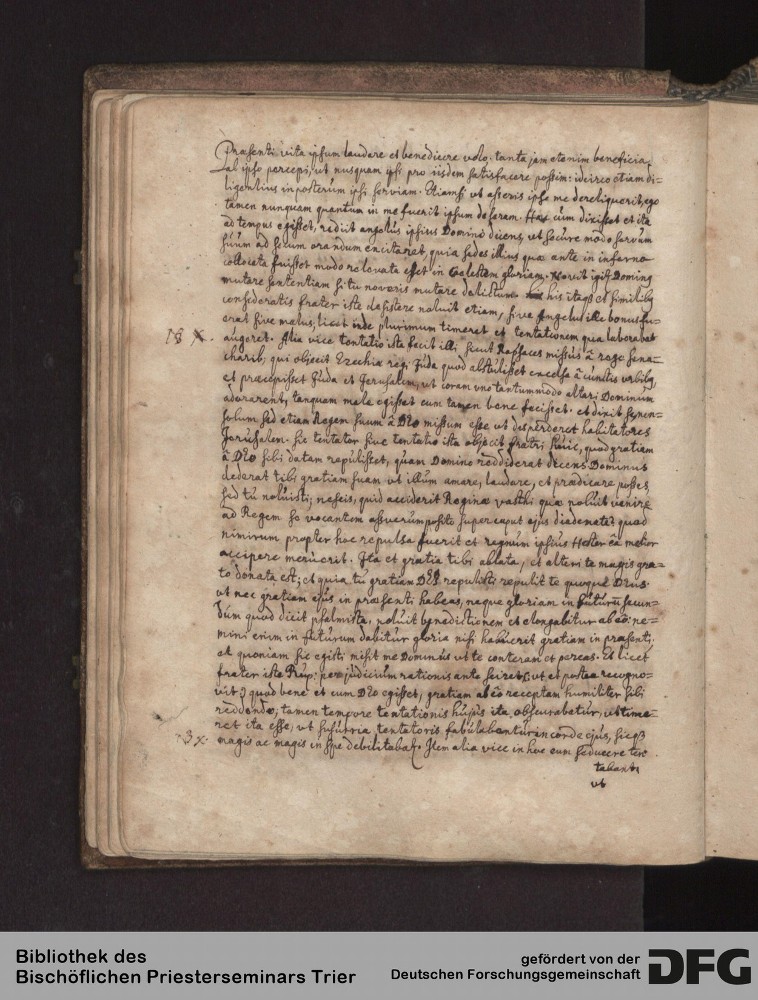 Præsenti vita ipsum laudare et benedicere volo. tanta jam etenim beneficia,
ab ipso percepi, ut nusquam ipsi pro iisdem satisfacere possim: idcirco etiam di-
ligentius in posterum ipsi serviam. Etiamsi ut asseris ipse me dereliquerit, ego
tamen nunquam quantum in me fuerit ipsum deseram. Hæc cum dixisset et ita
ad tempus egisset, rediit angelus ipsius Domino dicens, ut secure modo servum
suum ad secum orandum excitaret, quia sedes illius quæ ante in inferno
collocata fuisset modo relevata esset in Coelestem gloriam. Novit igitur Dominus
mutare sententiam si tu noveris mutare delictum. his itaque et similibus
consideratis frater iste desistere noluit etiam, sive Angelus ille bonus fu-
erat sive malus, licet inde plurimum timeret et tentationem qua laborabat
18 X. augeret. Alia vice tentatio ista fecit illi sicut Rapsaces missus â rege Sena-
charib, qui objecit Ezechiæ regi Juda quod abstulisset excelsa â cunctis urbibus
et præcepisset Juda et Jerusalem, ut coram uno tantummodo altari Dominum
adorarent, tanquam male egisset cum tamen bene fecisset. et dixit se non-
solum sed etiam Regem suum â DEO missum esse ut desperderet habitatores
Jerusalem. sic tentator sive tentatio ista objecit fratri huic, quod gratiam
â DEO sibi datam repulisset, quam Domino reddiderat dicens Dominus
dederat tibi gratiam suam ut illum amare, laudare, et prædicare posses
sed tu noluisti; nescis, quid acciderit Reginæ Vasthi quæ noluit venire
ad Regem se vocantem assuerum posito super caput ejus diademate? quod
nimirum propter hoc repulsa fuerit et regnum ipsius Hester eâ melior
accipere meruerit. Ita et gratia tibi ablata, et alteri te magis gra-
to donata est; et quia tu gratiam DEI repulisti repulit te quoque Deus.
ut nec gratiam ejus in præsenti habeas, neque gloriam in futuru secun-
dum quod dicit psalmista, noluit benedictionem et elongabitur ab eo: ne-
mini enim in futurum dabitur gloria nisi habuerit gratiam in præsenti,
et quoniam sic egisti misit me Dominus ut te conteram et pereas. Et licet
frater iste Rup: per judicium rationis ante sciret, ut et postea recogno-
vit quod bene et cum DEO egisset, gratiam ab eo receptam humiliter sibi
reddendo, tamen tempore tentationis hujus ita obscurabatur, ut time-
ret ita esse, ut susurria tentatoris fabulabantur in corde ejus, sicque
3 X. magis ac magis in spe debilitabat. Item alia vice in hoc eum seducere ten-
tabant
ut
Bibliothek des
Bischöflichen Priesterseminars Trier
gefördert von der
Deutschen Forschungsgemeinschaft
DFG